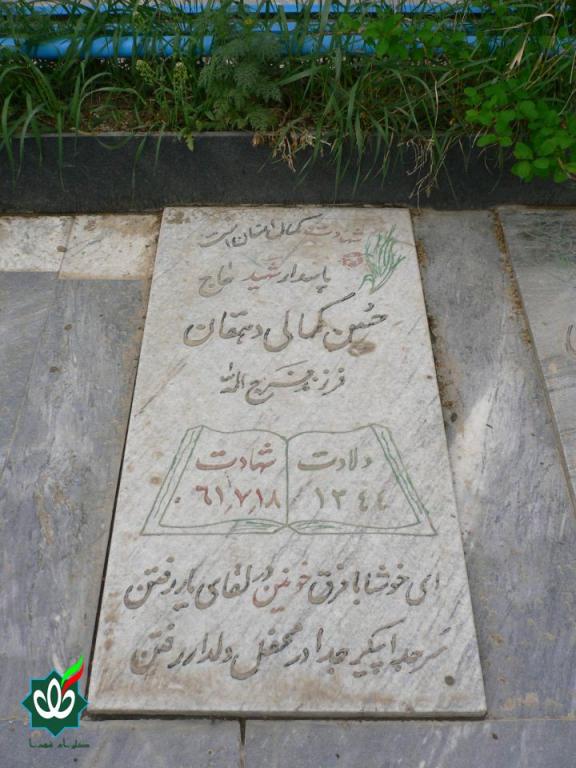 شهادت کمال انسان است
پاسدار شهید حاج
حسین کمالی دهقان
فرزند فرج الله
ولادت شهادت
۱۳۴۴ ۶۱،۷،۱۸
ای خوشا با فرق خونین در لقای یار رفتن
سر جدا پیکر جدا در محفل دلدار رفتن
گلزار شهدا